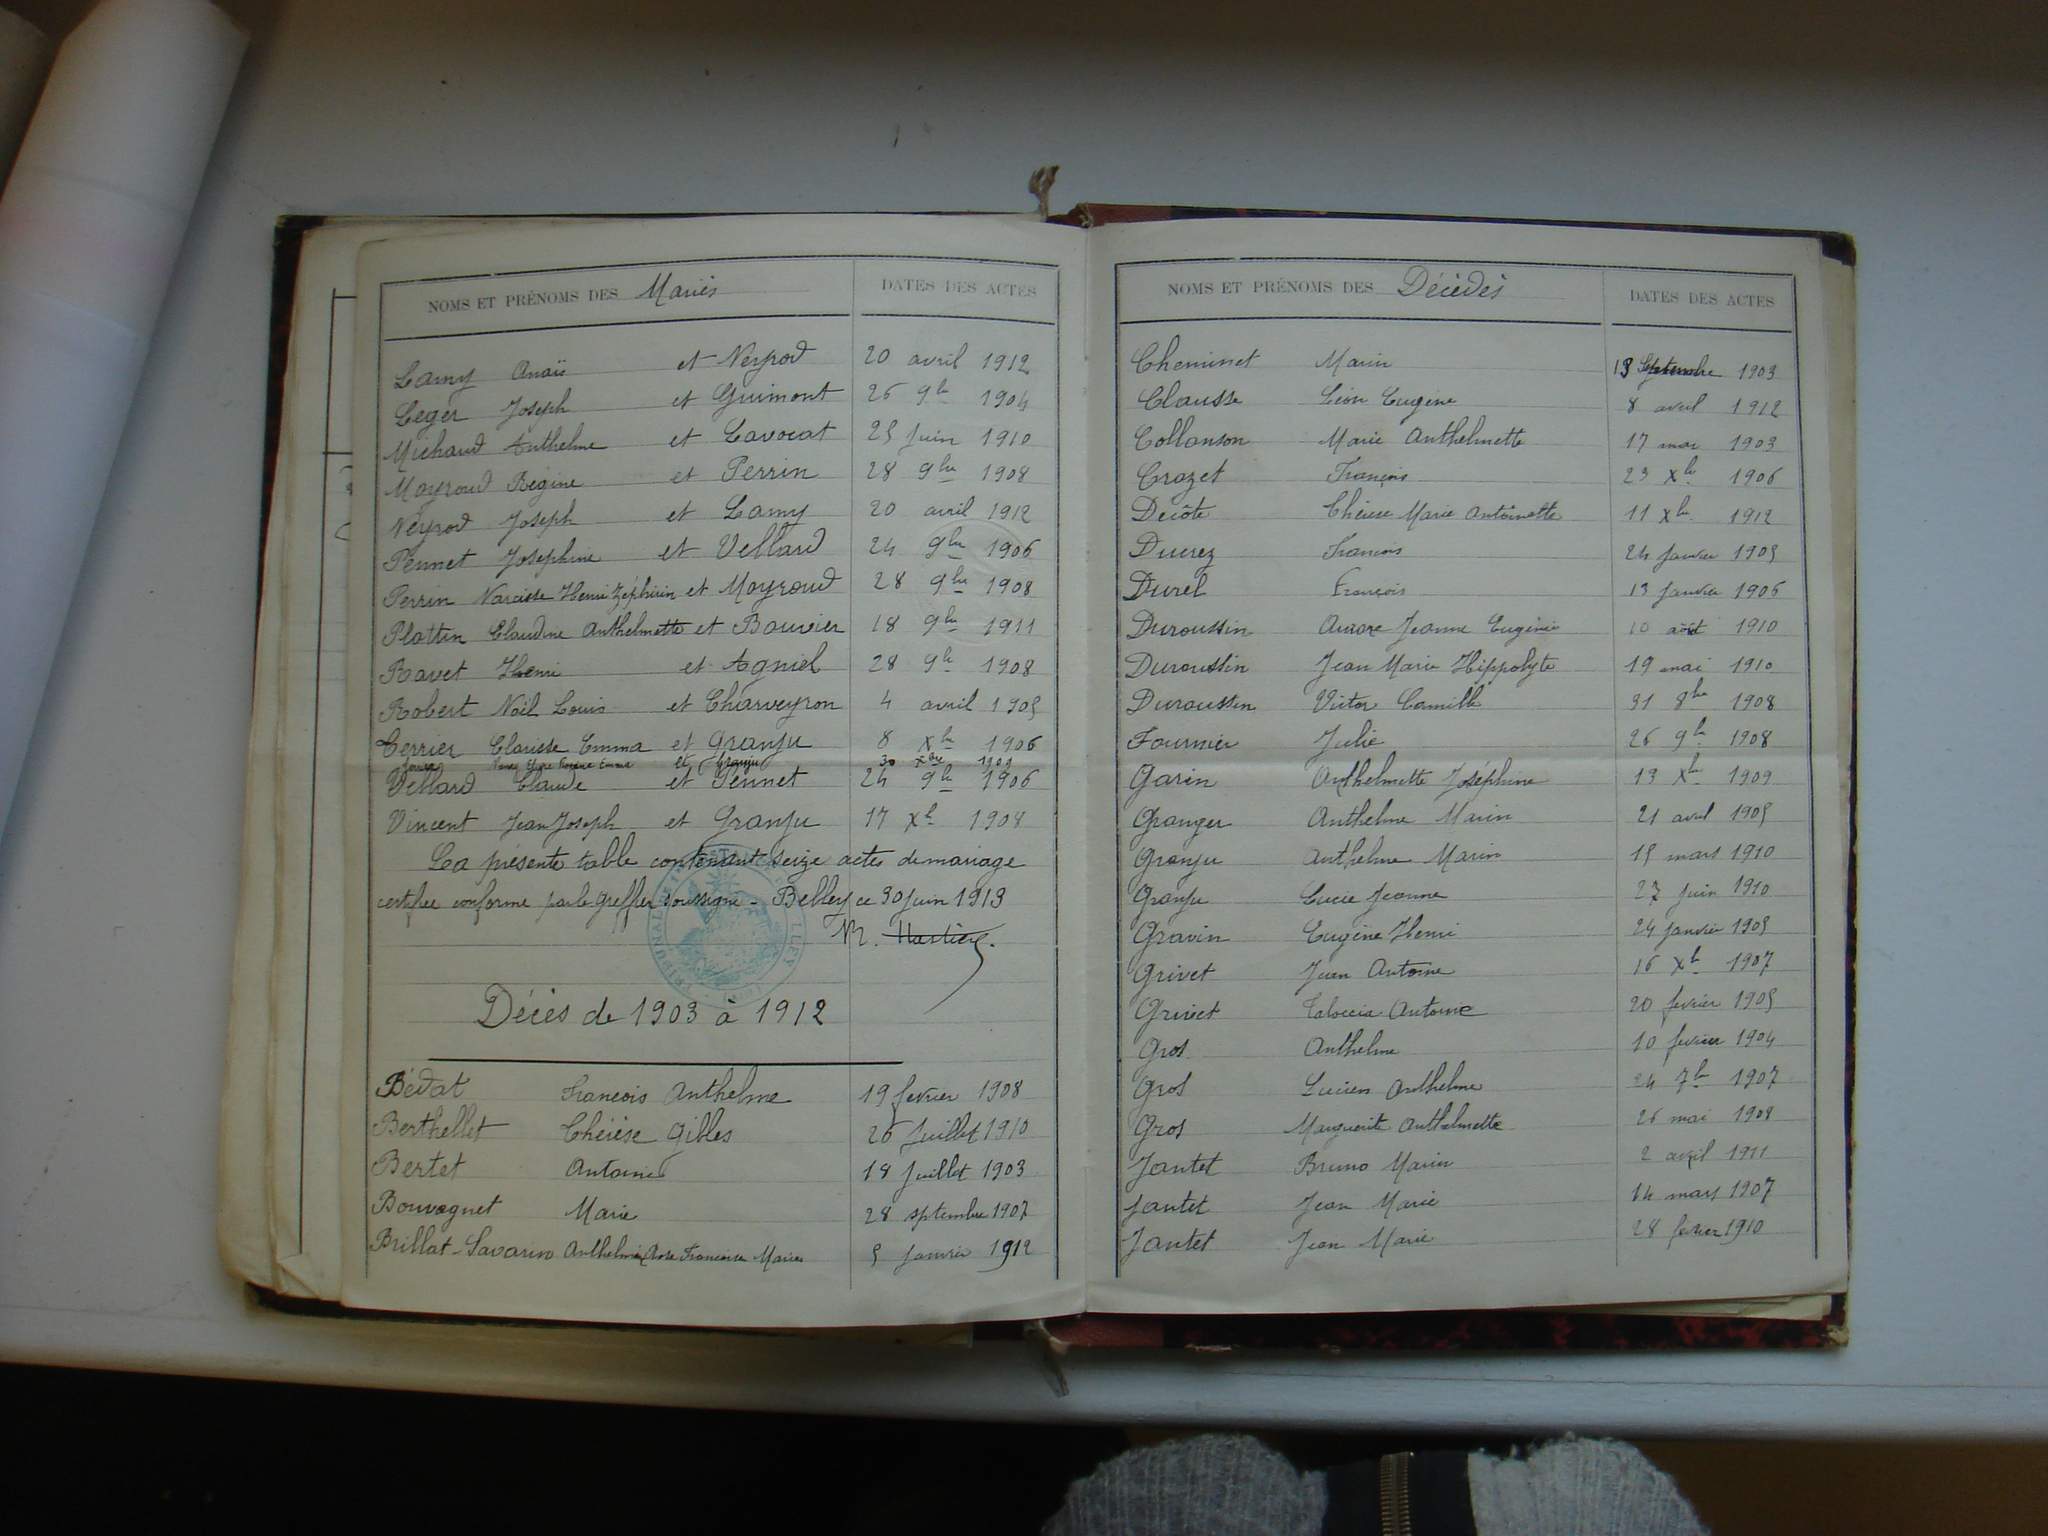 NOMS ET PRÉNOMS DES Mariés DATES DES ACTES
Lamy Anaïs et Neyrod 20 avril 1912
Leger Joseph et Guimont 26 9bre 1904
Michaud Anthelme et Lavocat 25 Juin 1910
Moyroud Régine et Perrin 28 9bre 1908
Neyrod Joseph et Lamy 20 avril 1912
Pennet Joséphine et Vellard 24 9bre 1906
Perrin Narcisse Henri Zéphirin et Moyroud 28 9bre 1908
Plottin Claudine Anthelmette et Bouvier 18 9bre 1911
Ravet Henri et Agniel 28 9bre 1908
Robert Noël Louis et Charveyron 4 avril 1905
Terrier Clarisse Emma et Granju 8 Xbre 1906
et Granju 30 Xbre 1909
Vellard Claude et Pennet 24 9bre 1906
Vincent Jean Joseph et Granju 17 Xbre 1908
La présente table contenant seize actes de mariage
certifiée conforme par le greffier soussigné - Belley ce 30 Juin 1913
Décès de 1903 à 1912
Bévat François Anthelme 19 fevrier 1908
Berthellet Thérèse Gibles 26 Juillet 1910
Bertet Antoine 18 Juillet 1903
Bouvagnet Marie 28 septembre 1907
Brillat-Savarin Anthelmie Françoise Marie 5 Janvier 1912
NOMS ET PRÉNOMS DES Décédés DATES DES ACTES
Cheminet Marin 13 Septembre 1903
Clausse Léon Eugène 8 avril 1912
Collonson Marie Anthelmette 17 mai 1903
Crozet François 23 Xbre 1906
Decôte Thérèse Marie Antoinette 11 Xbre 1912
Ducrez François 24 Janvier 1905
Durel François 13 Janvier 1906
Duroussin Aurore Jeanne Eugénie 10 août 1910
Duroussin Jean Marie Hippolyte 19 mai 1910
Duroussin Victor Camille 31 8bre 1908
Fournier Julie 26 9bre 1908
Garin Anthelmette Joséphine 13 Xbre 1909
Granger Anthelme Marin 21 avril 1905
Granju Anthelme Marin 15 mars 1910
Granju Lucie Jeanne 27 Juin 1910
Gravin Eugène Henri 24 janvier 1905
Grivet Jean Antoine 16 Xbre 1907
Grivet Antoine 20 fevrier 1905
Gros Anthelme 10 fevrier 1904
Gros Lucien Anthelme 24 7bre 1907
Gros Marguerite Anthelmette 26 mai 1908
Jantet Bruno Marin 2 avril 1911
Jantet Jean Marie 14 mars 1907
Jantet Jean Marie 28 fevrier 1910